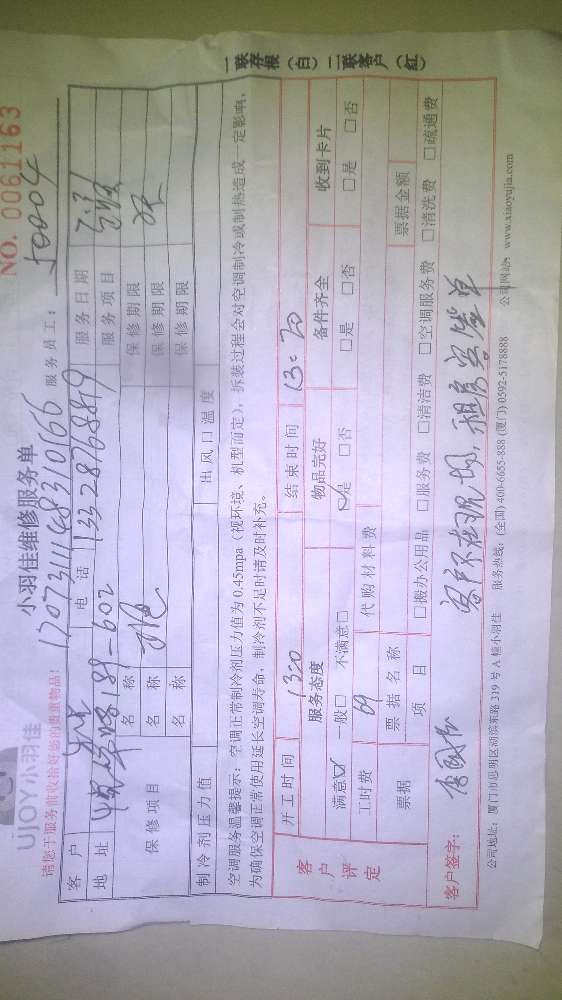 UJOY小羽佳
小羽佳维修服务单
NO. 0061163
请您于服务前收拾好您的贵重物品!
服务员工: 50004
客户
电话 13328768819
服务日期 7.31
地址 189-602
服务项目
保修项目
名称
保修期限
名称
保修期限
名称
保修期限
制冷剂压力值
出风口温度
空调服务温馨提示:空调正常制冷剂压力值为0.45mpa(视环境、机型而定),拆装过程会对空调制冷或制热造成一定影响,
为确保空调正常使用延长空调寿命,制冷剂不足时请及时补充。
客户评定
开工时间
结束时间 13:20
服务态度
物品完好
备件齐全
收到卡片
满意☑ 一般□ 不满意□
☑是 □否
□是 □否
□是 □否
工时费 69
代购材料费
票据
票据名称
票据金额
项目
□搬办公用品 □服务费 □清洁费 □空调服务费 □清洗费 □疏通费
客户签字:
客户不在现场,租房客签单
公司地址:厦门市思明区湖滨东路319号A幢小羽佳
服务热线:(全国)400-6655-888 (厦门)0592-5178888
公司网站:www.xiaoyujia.com
一联存根(白)二联客户(红)